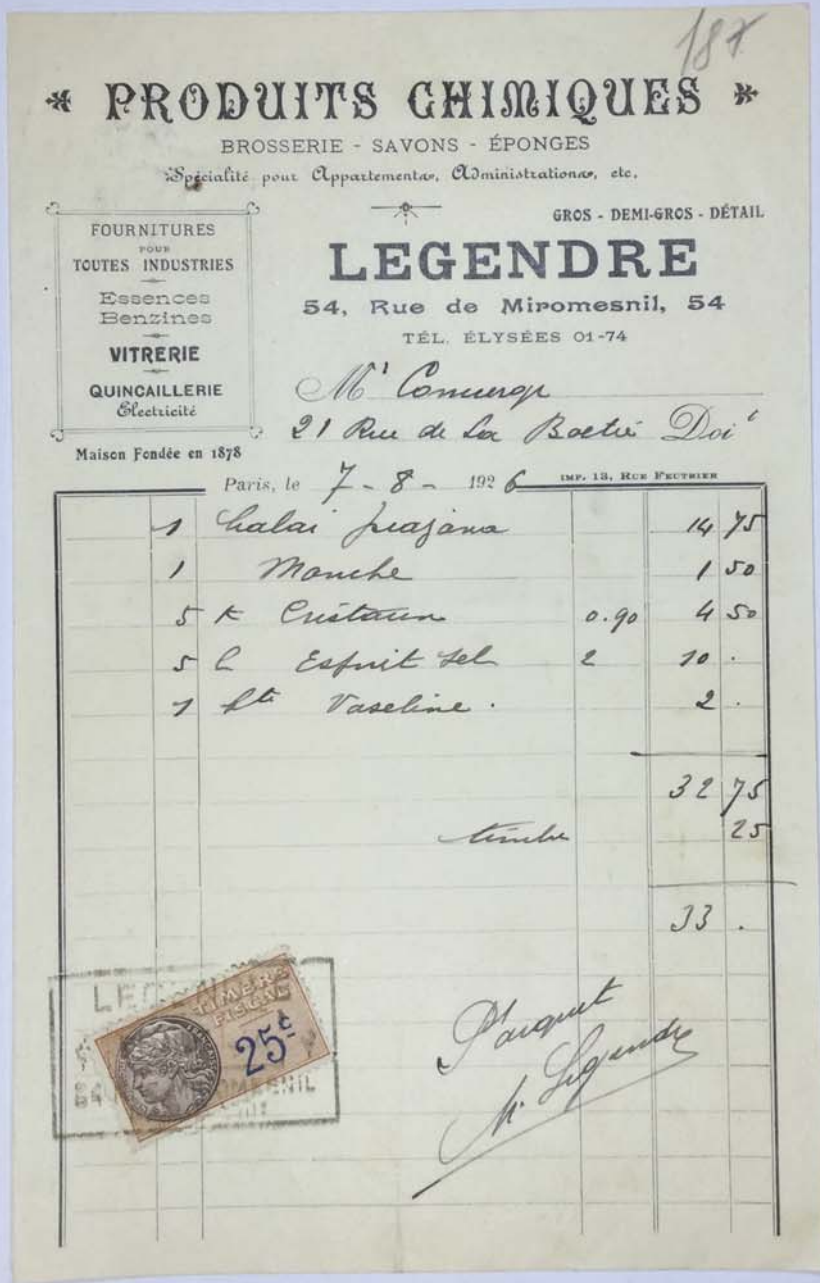 187
PRODUITS CHIMIQUES
BROSSERIE - SAVONS - ÉPONGES
Spécialité pour Appartements, Administrations, etc.
FOURNITURES
POUR
TOUTES INDUSTRIES
Essences
Benzines
VITRERIE
QUINCAILLERIE
Electricité
Maison Fondée en 1878
GROS - DEMI-GROS - DÉTAIL
LEGENDRE
54, Rue de Miromesnil, 54
TÉL. ÉLYSÉES 01-74
Mr Concierge
21 Rue de La Boetie Doit
Paris, le 7-8-1926
IMP. 13, RUE FEUTRIER
1 balai 14 75
1 Manche 1 50
5 K Cristaux 0.90 4 50
5 L Esprit sel 2 10 .
1 bte Vaseline . 2 .
32 75
timbre 25
33 .
TIMBRE
FISCAL
25c
P. acquit
Legendre